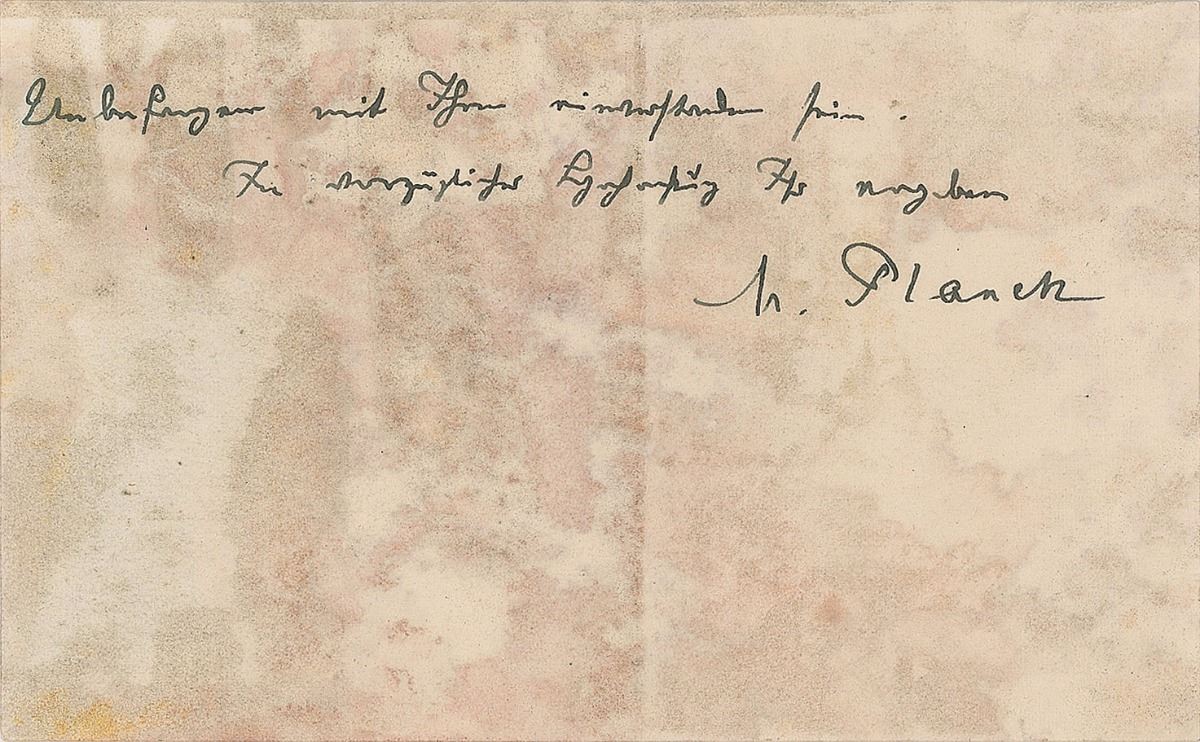 Unbefangene mit Ihnen einverstanden sein.
In vorzüglicher Hochachtung Ihr ergebener
M. Planck